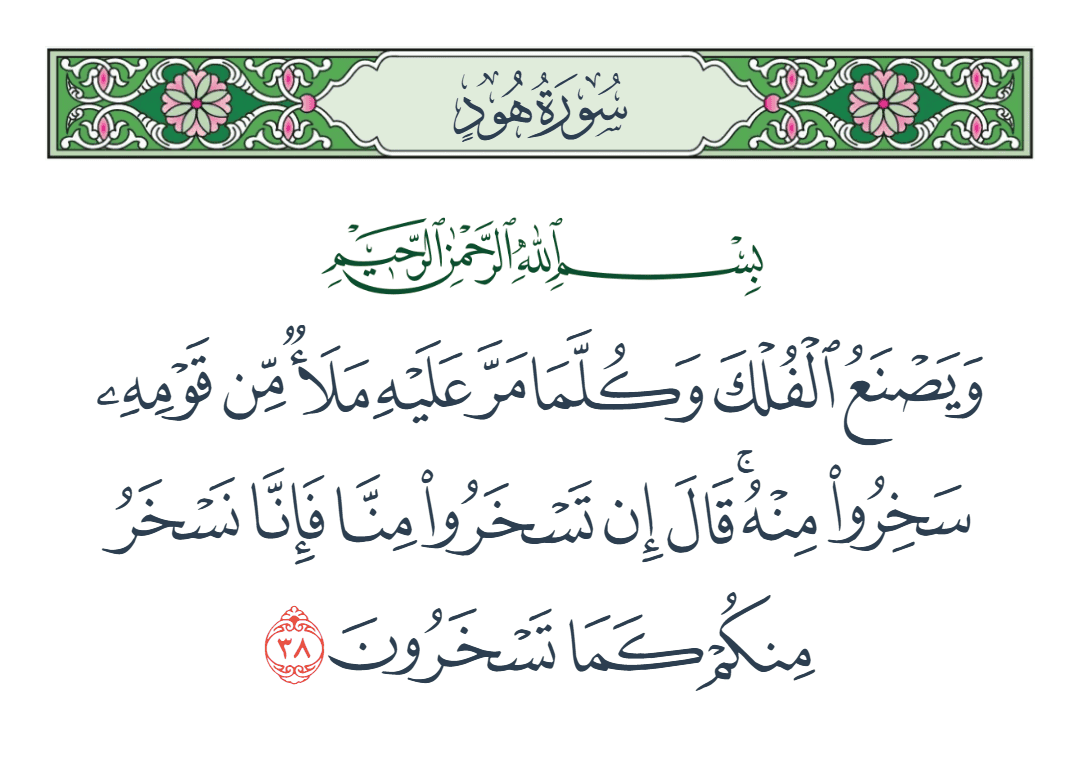 سُورَةُ هُودٍ
بِسْمِ ٱللَّهِ ٱلرَّحْمَٰنِ ٱلرَّحِيمِ
وَيَصْنَعُ ٱلْفُلْكَ وَكُلَّمَا مَرَّ عَلَيْهِ مَلَأٌ مِّن قَوْمِهِۦ
سَخِرُوا۟ مِنْهُ ۚ قَالَ إِن تَسْخَرُوا۟ مِنَّا فَإِنَّا نَسْخَرُ
مِنكُمْ كَمَا تَسْخَرُونَ ٣٨